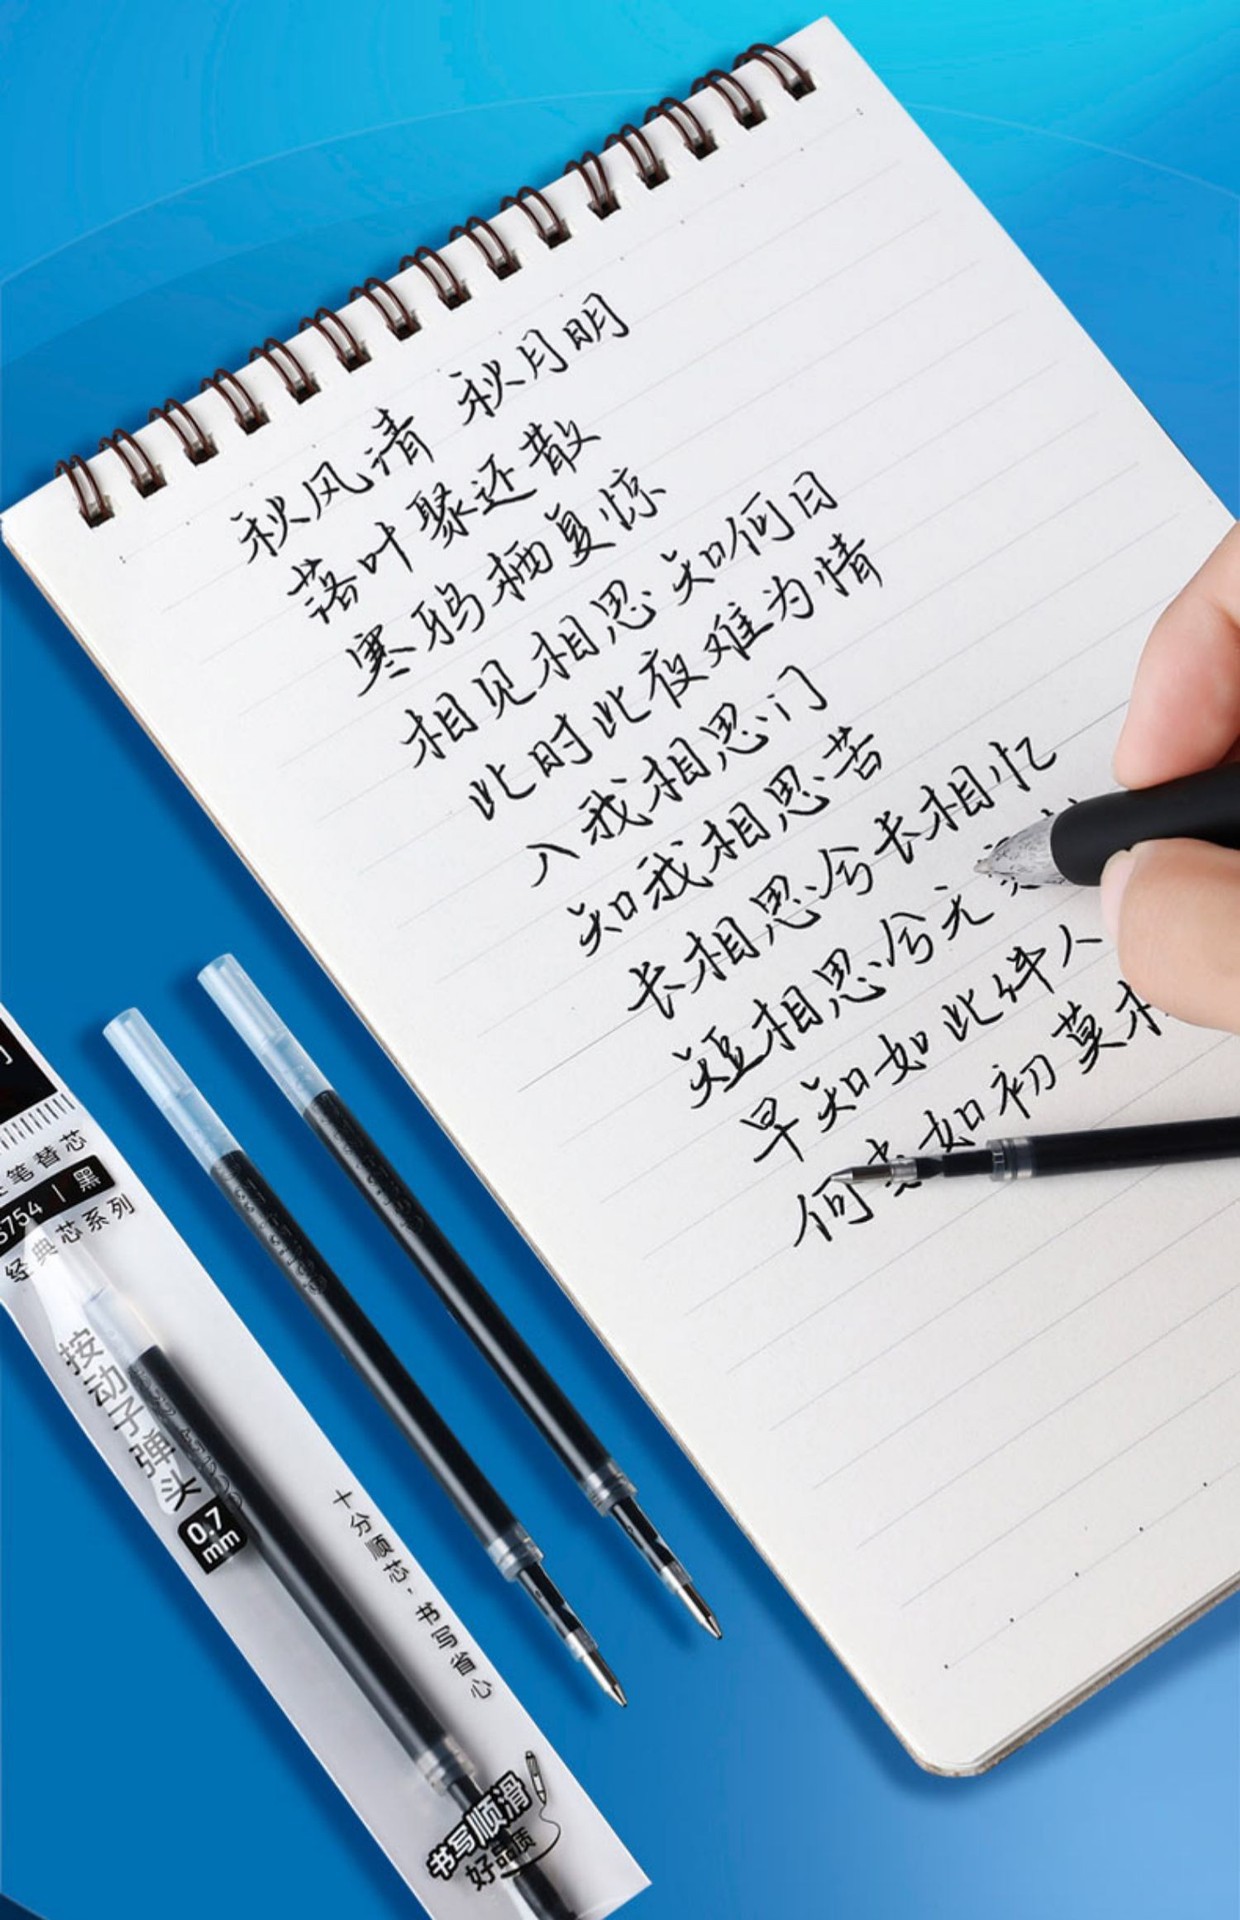 秋风清 秋月明
落叶聚还散
寒鸦栖复惊
相见相思知何日
此时此夜难为情
入我相思门
知我相思苦
长相思兮长相忆
短相思兮无
早知如此绊人
何 如初莫相
笔替芯
5754 | 黑
经典芯系列
按动子弹头
0.7
mm
十分顺芯，书写省心
书写顺滑
好品质